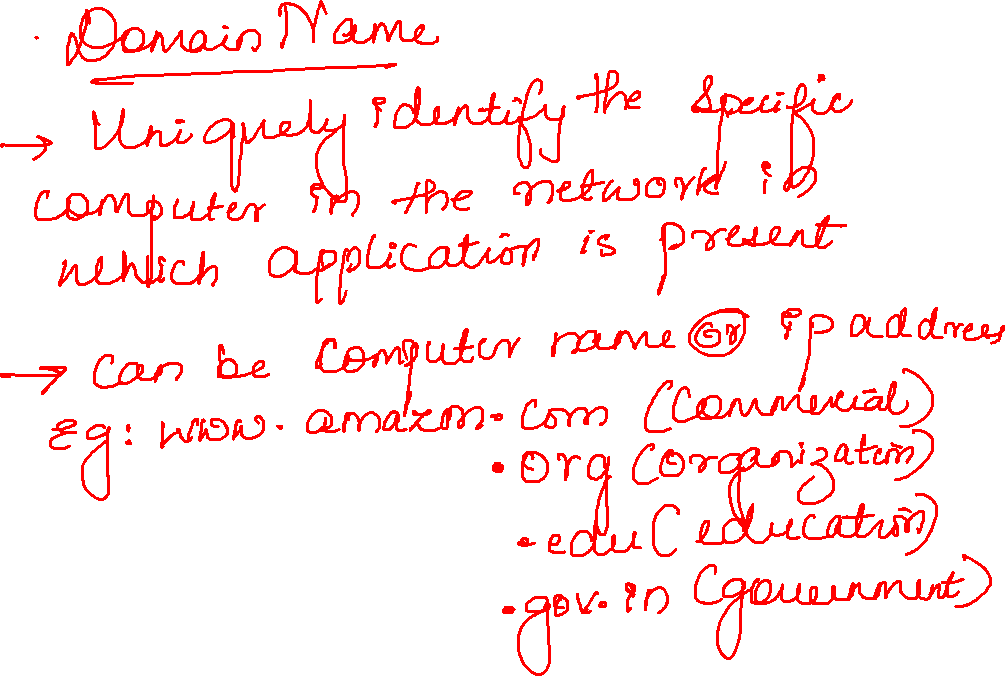 Domain Name
→ Uniquely identify the specific
computer in the network in
which application is present
→ can be computer name or ip address
Eg: www.amazon.com (Commercial)
.org (organization)
.edu (education)
.gov.in (government)